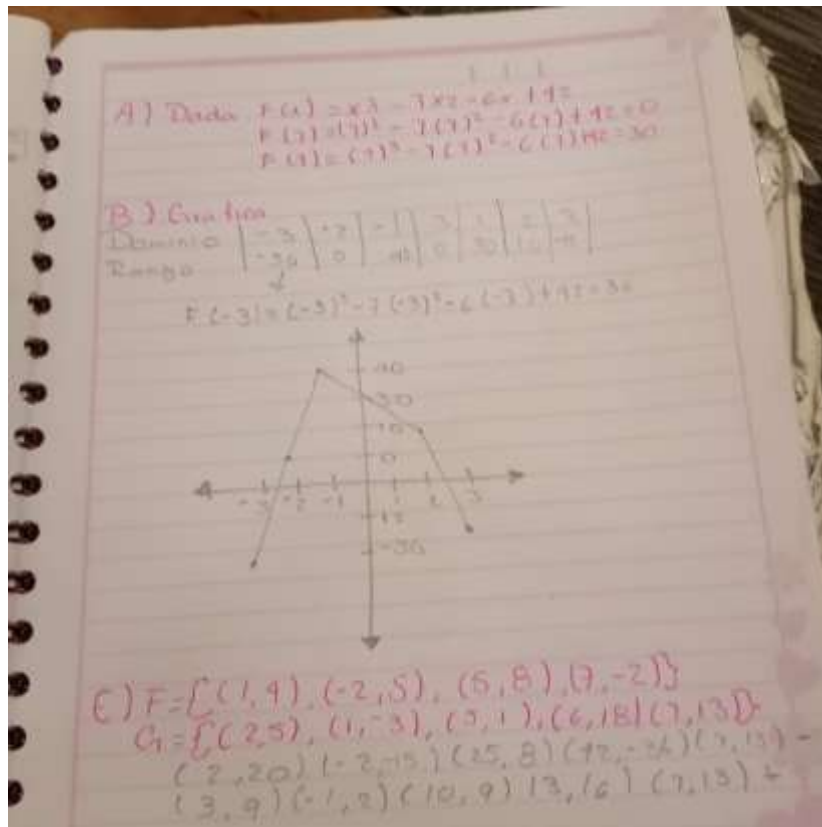 A) Dada F(x) = x3 - 7x2 - 6x + 42
F(7) = (7)³ - 7(7)² - 6(7) + 42 = 0
F(1) = (1)³ - 7(1)² - 6(1) + 42 = 30
B) Grafica
Dominio | -3 | -2 | -1 | | 1 | 2 | 3 |
Rango | -30 | 0 | 40 | 0 | 30 | |
F(-3) = (-3)³ - 7(-3)² - 6(-3) + 42 = 30
40
30
10
0
-3 -2 -1 1 2 3
12
-30
C) F = {(1,4), (-2,5), (5,8), (7,-2)}
G = {(2,5), (1,-3), (5,1), (6,18)(7,13)}
(2,20)(-2,-15)(25,8)(42,-36)(7,13) -
(3,9)(-1,2)(10,9)13,16)(7,13) +